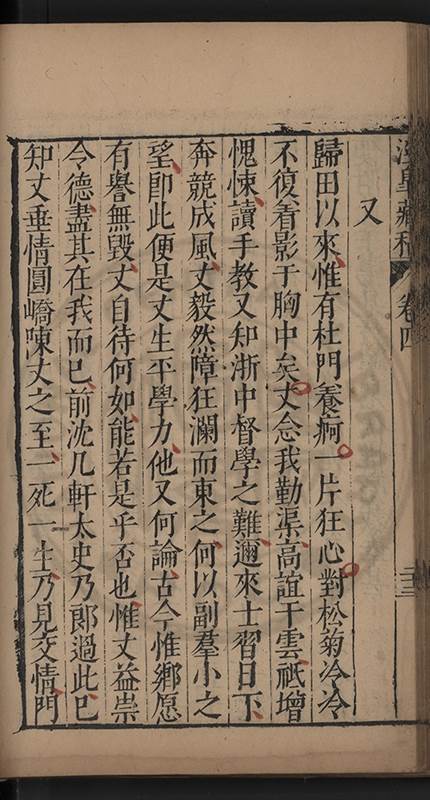 涇皋藏稿
卷四
又
歸田以來惟有杜門養痾一片狂心對松菊冷冷
不復着影于胸中矣丈念我勤渠高誼干雲祇增
愧悚讀手教又知浙中督學之難邇來士習日下
奔競成風丈毅然障狂瀾而東之何以副羣小之
望即此便是丈生平學力他又何論古今惟鄉愿
有譽無毀丈自待何如能若是乎否也惟丈益崇
令德盡其在我而已前沈几軒太史乃郎過此已
知丈垂情圓嶠陳丈之至一死一生乃見交情門